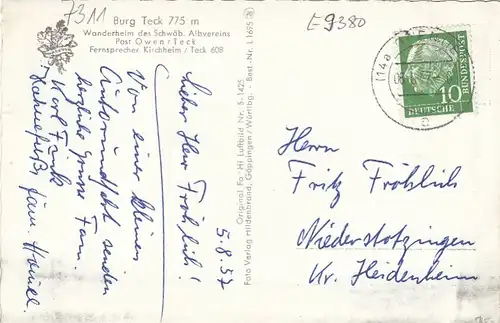 7311
E 9380
Burg Teck 775 m
Wanderheim des Schwäb. Albvereins
Post Owen/Teck
Fernsprecher Kirchheim/Teck 608
Original Fo-Hi Luftbild Nr. S-1425
Foto Verlag Hildenbrand, Göppingen/Württbg. Best. Nr. L 1675
5.8.57
Lieber Herr Fröhlich!
Von einer kleinen
Autorundfahrt senden
herzliche Grüsse Fam.
Karl Fink
Fam.
(14a)
10
DEUTSCHE
BUNDESPOST
Herrn
Fritz Fröhlich
Niederstotzingen
Kr. Heidenheim